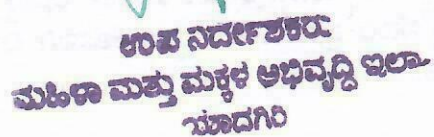 ಉಪ ನಿರ್ದೇಶಕರು
ಮಹಿಳಾ ಮತ್ತು ಮಕ್ಕಳ ಅಭಿವೃದ್ಧಿ ಇಲಾ
ಯಾದಗಿರಿ